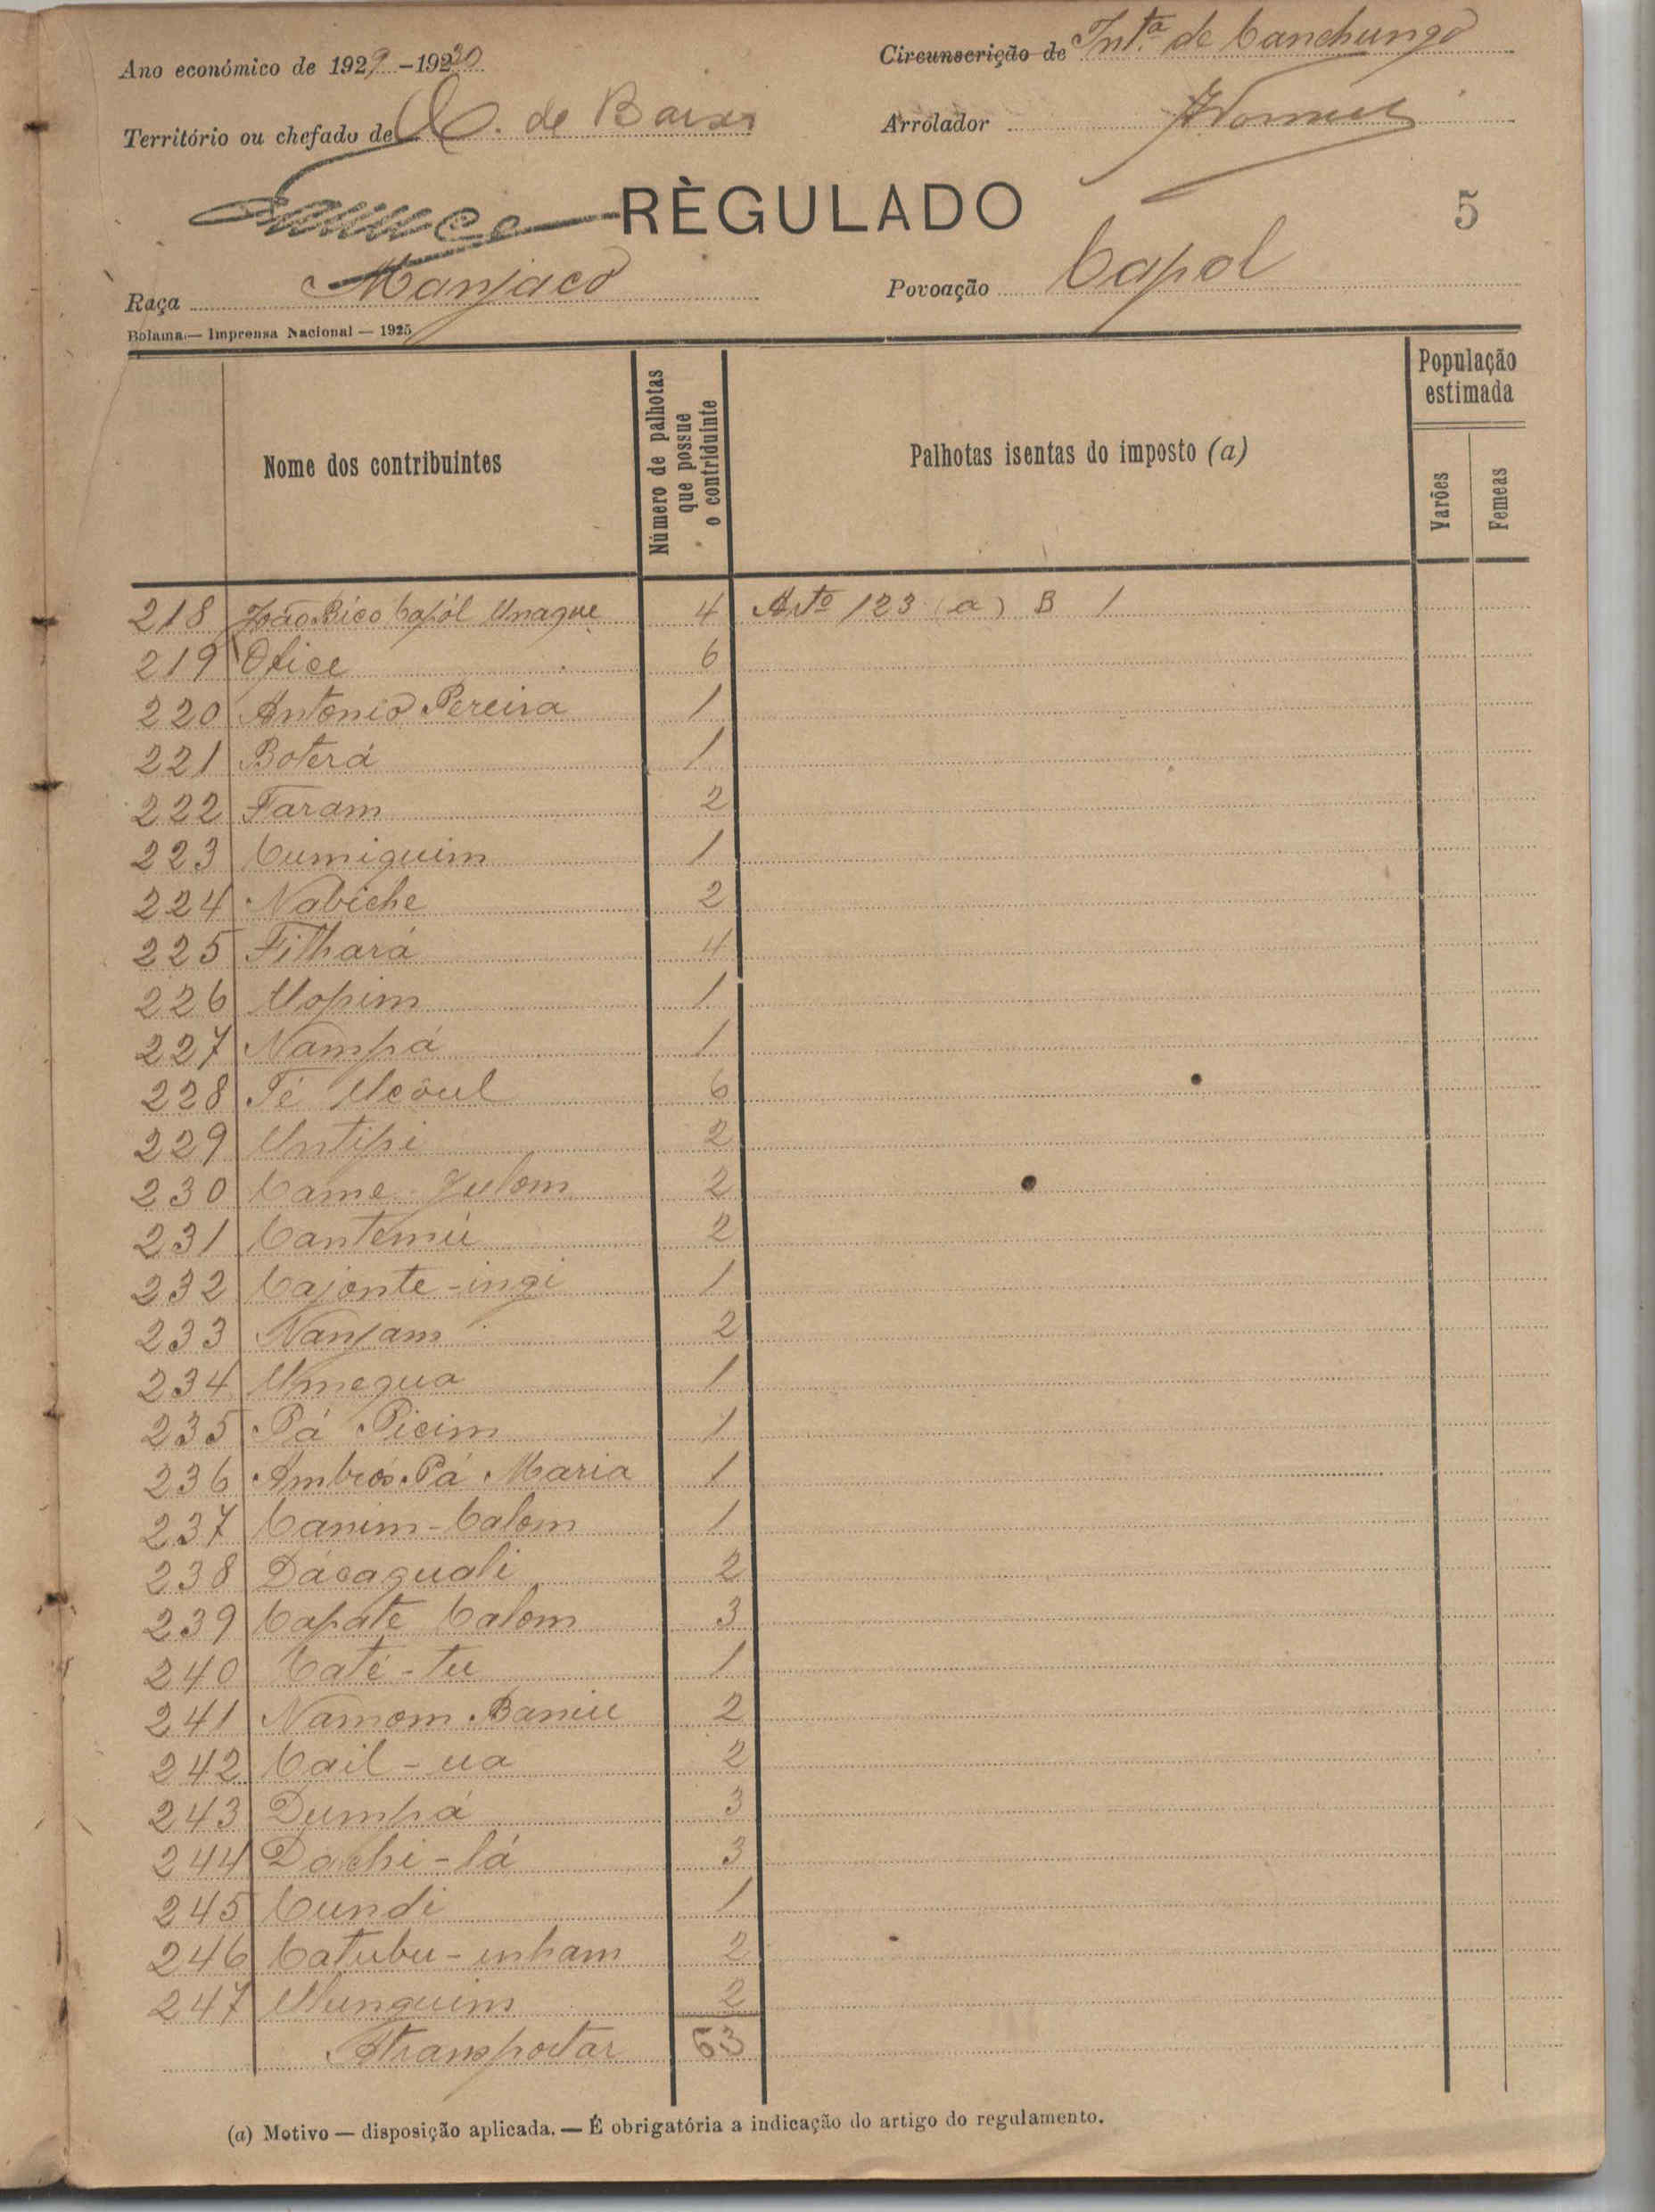 Ano económico de 1929-1930
Circunscrição de Int.ª de Canchungo
Território ou chefado de C. de Baixo
Arrolador
RÈGULADO
5
Raça Manjaco
Povoação Capol
Bolama — Imprensa Nacional — 1925
Nome dos contribuintes
Número de palhotas que possue o contriduinte
Palhotas isentas do imposto (a)
População estimada
Varões
Femeas
218 João Bico Capól Unague 4 Artº 123 (a) B 1
219 Ofice 6
220 Antonio Pereira 1
221 Boterá 1
222 Faram 2
223 Cumiquim 1
224 Nabiche 2
225 Filhará 4
226 Uopim 1
227 Nampá 1
228 Té Ucôul 6
229 Untipi 2
230 Came-Julom 2
231 Cantemú 2
232 Cajonte-ingi 1
233 Nanjam 2
234 Umequa 1
235 Pá Picim 1
236 Ambrós Pá Maria 1
237 Canim-Calom 1
238 Dácaguali 2
239 Capate Calom 3
240 Caté-tu 1
241 Namom Baniu 2
242 Cail-ua 2
243 Dumpá 3
244 Dachi-lá 3
245 Cundi 1
246 Catubu-inham 2
247 Ununquim 2
A transportar 63
(a) Motivo — disposição aplicada. — É obrigatória a indicação do artigo do regulamento.